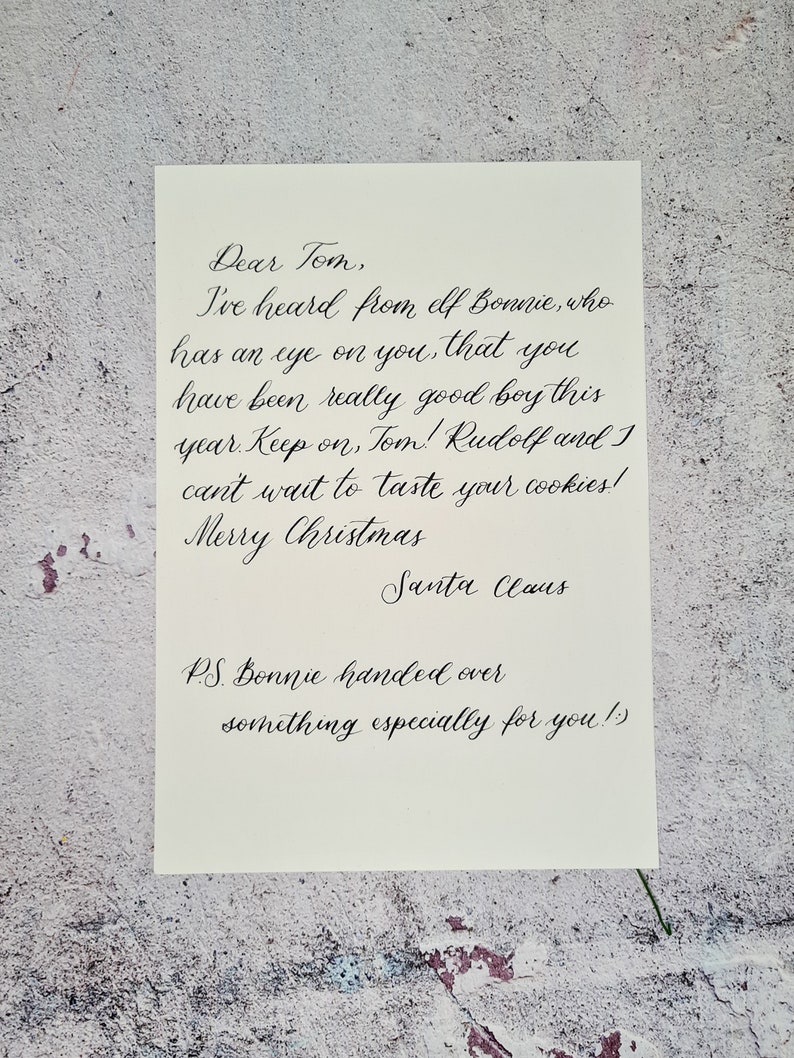 Dear Tom,
I've heard from elf Bonnie, who
has an eye on you, that you
have been really good boy this
year. Keep on, Tom! Rudolf and I
can't wait to taste your cookies!
Merry Christmas
Santa Claus
P.S. Bonnie handed over
something especially for you! :)